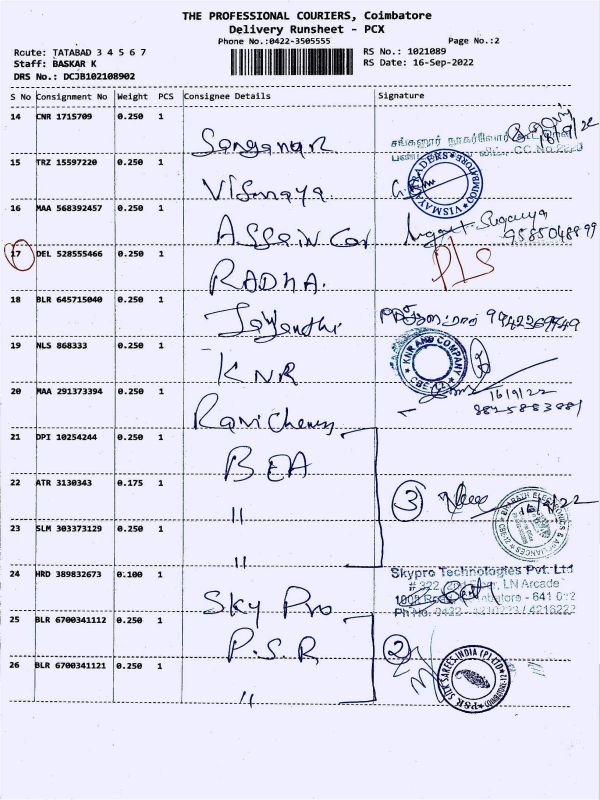 THE PROFESSIONAL COURIERS, Coimbatore
Delivery Runsheet - PCX
Phone No.:0422-3505555 Page No.:2
Route: TATABAD 3 4 5 6 7 RS No.: 1021089
Staff: BASKAR K RS Date: 16-Sep-2022
DRS No.: DCJB102108902
S No Consignment No Weight PCS Consignee Details Signature
14 CNR 1715709 0.250 1
சங்கனூர் நகர்வோர்
15 TRZ 15597220 0.250 1
Vismaya VISMAYA TRADERS COIMBATORE
16 MAA 568392457 0.250 1
9585048899
17 DEL 528555466 0.250 1 PLS
RADHA.
18 BLR 645715040 0.250 1
Jayanthi 9942369549
19 NLS 868333 0.250 1
KNR KNR AND COMPANY CBE-12
20 MAA 291373394 0.250 1 16/9/22
21 DPI 10254244 0.250 1
BEA
22 ATR 3130343 0.175 1
" 3 BHARATH ELECTRONICS & APPLIANCES CBE-12
23 SLM 303373129 0.250 1
"
24 HRD 389832673 0.100 1 Skypro Technologies Pvt. Ltd
LN Arcade
Sky Pro 641 012
25 BLR 6700341112 0.250 1
P.S.R 2
26 BLR 6700341121 0.250 1 PSR SILK SAREES INDIA (P) LTD
"